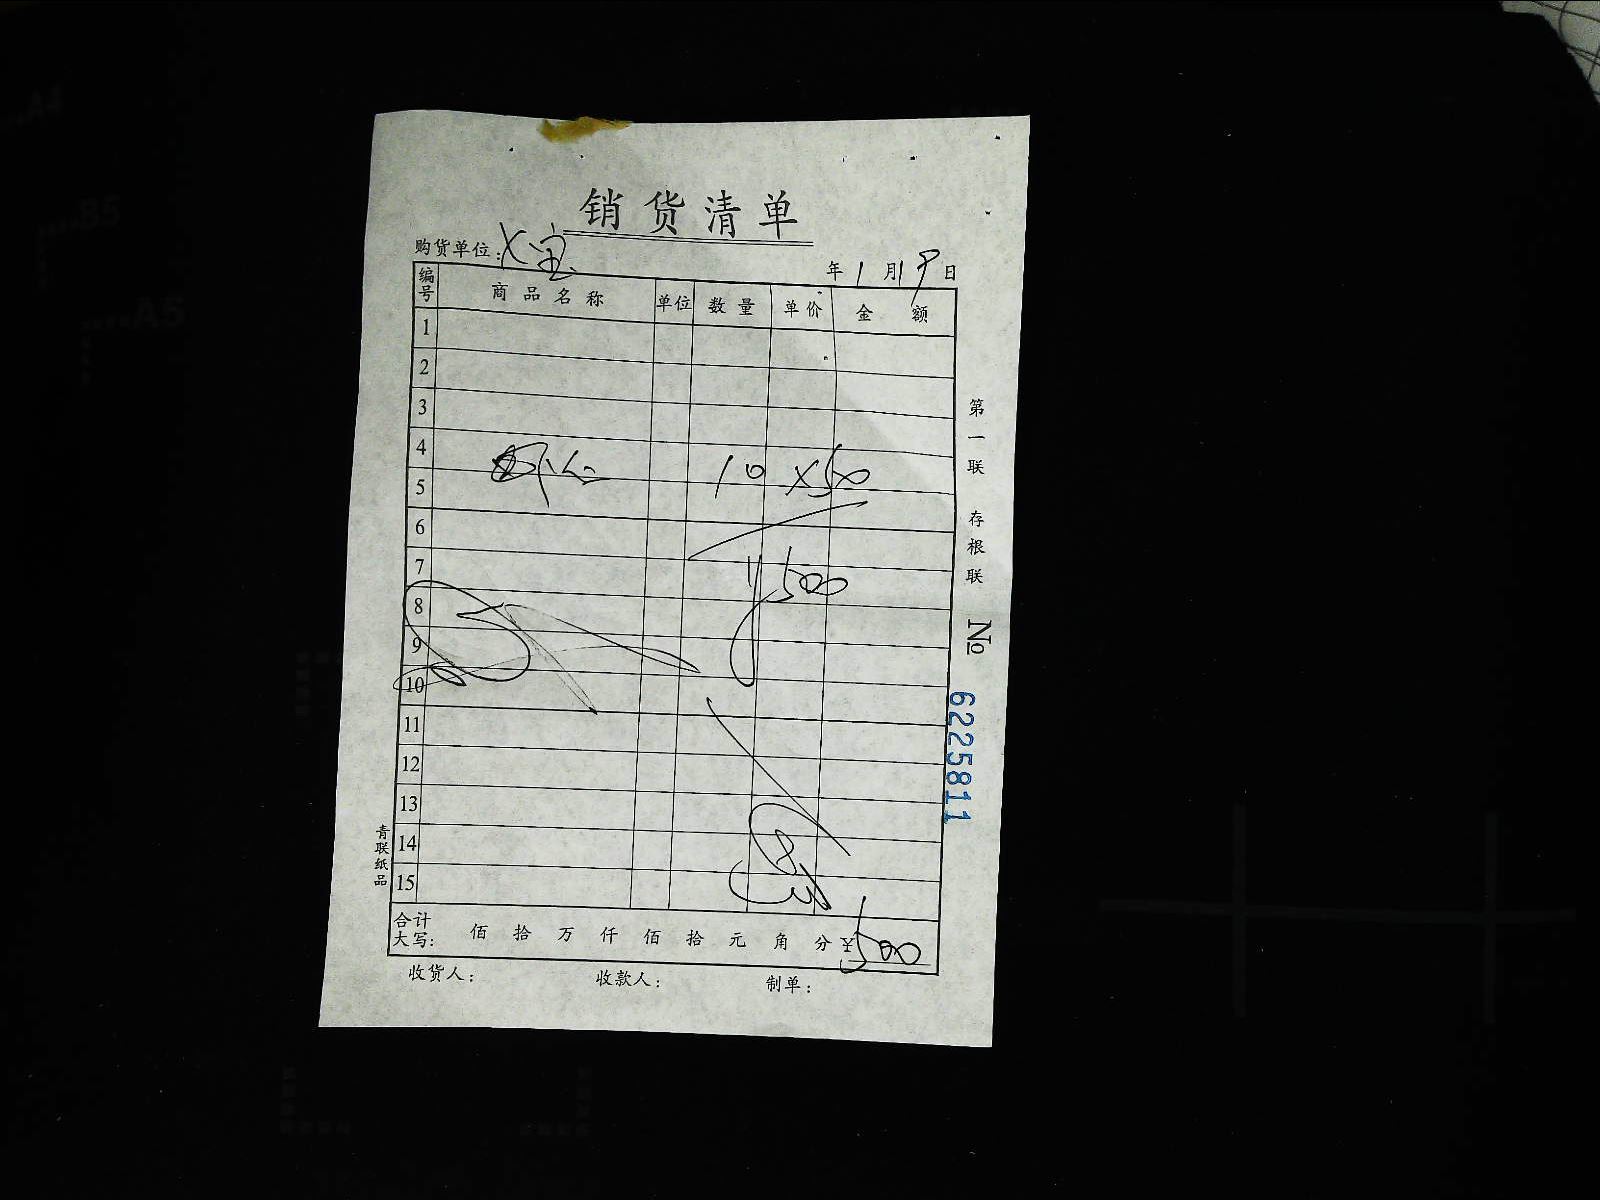 销货清单
购货单位:
年1月19日
编号 商品名称 单位 数量 单价 金额
1
2
3
4
10 X50
5
6
7
¥500
8
9
10
11
12
13
14
15
合计大写: 佰 拾 万 仟 佰 拾 元 角 分 ¥500
收货人: 收款人: 制单:
第一联 存根联
№ 6225811
青联纸品
A4
B5
A5